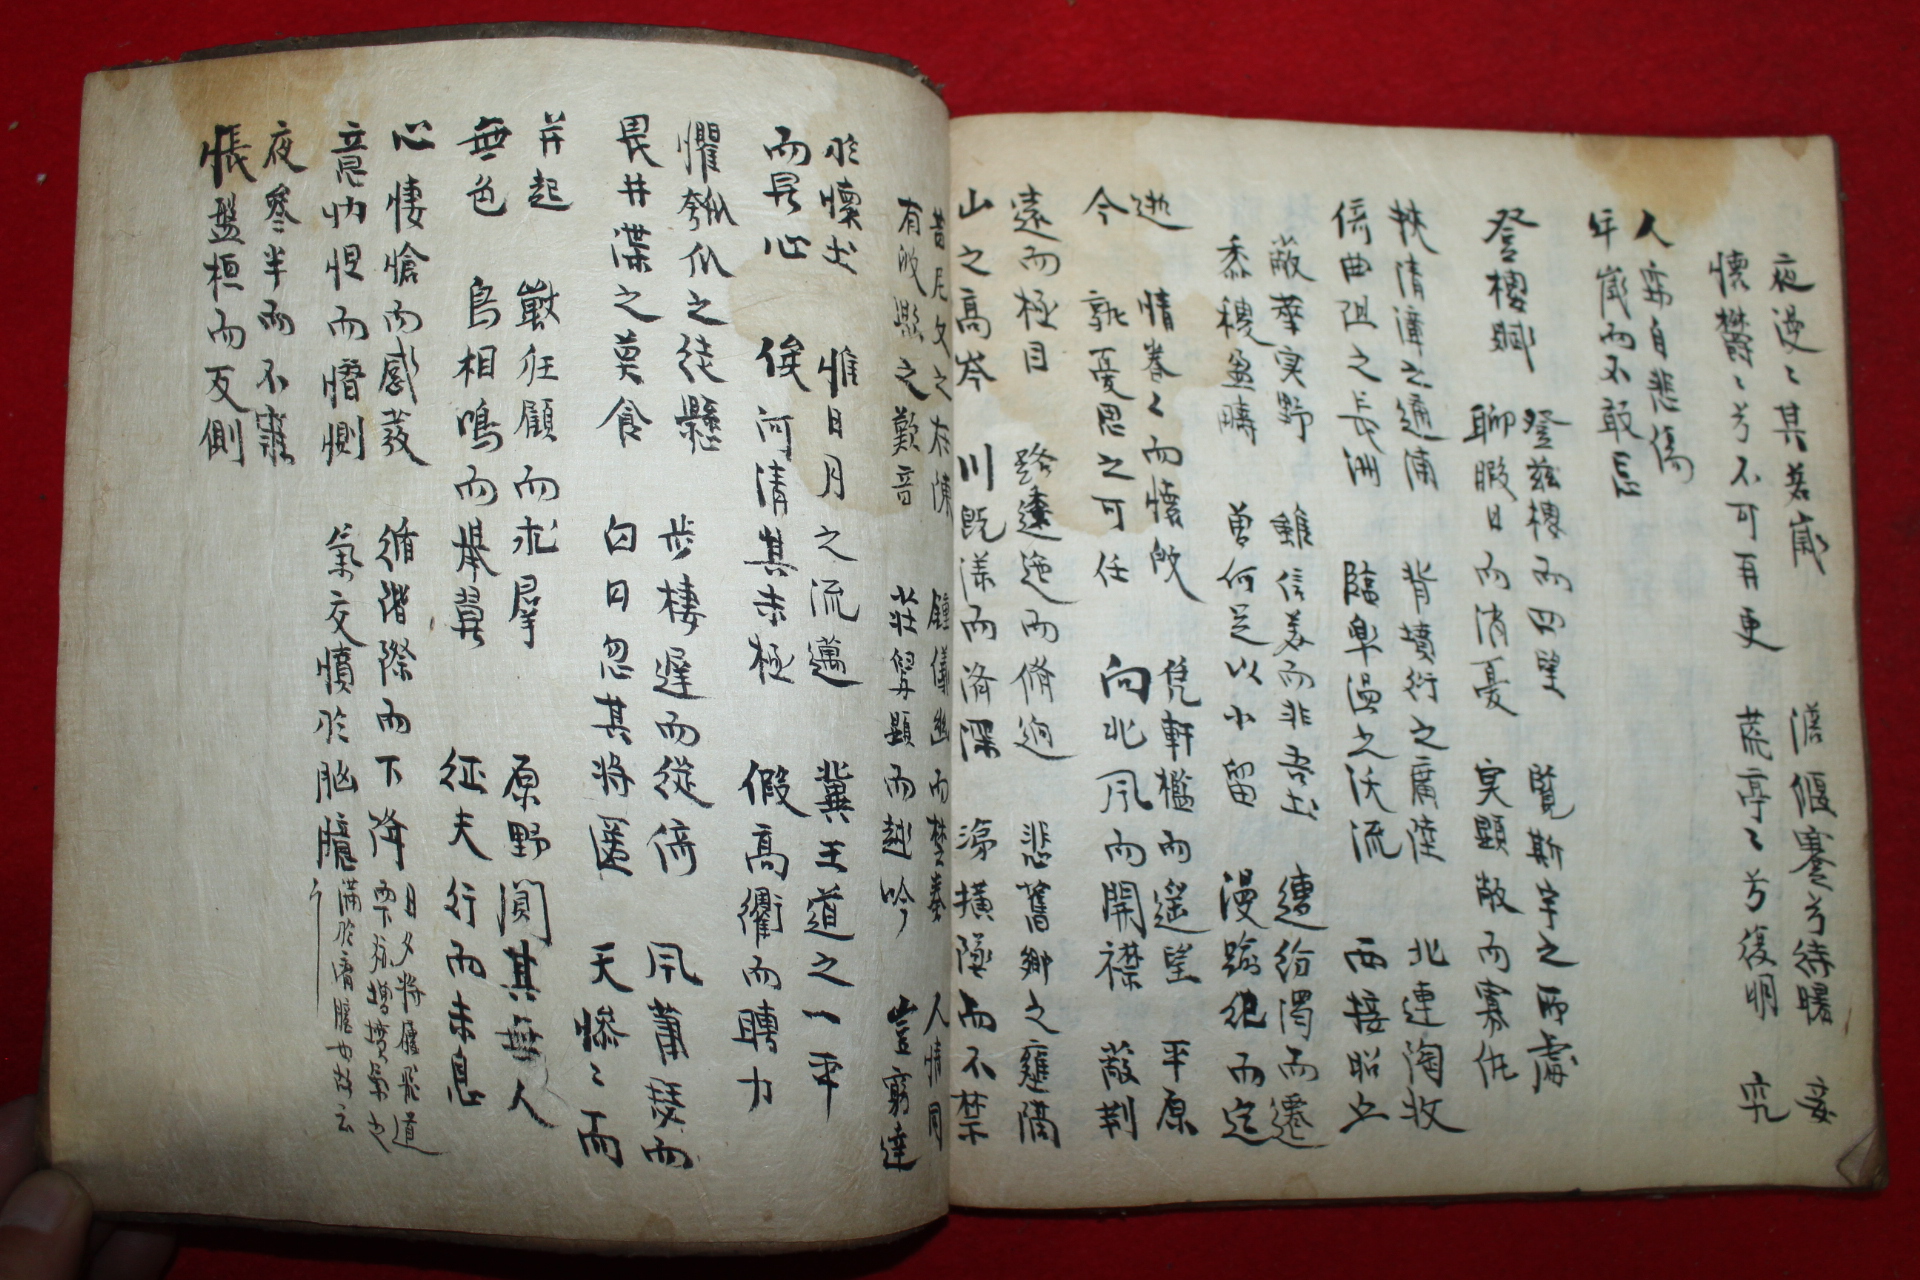 夜漫〻其若歲
懷鬱〻兮不可再更
澹偃蹇兮待曙
荒亭〻兮復明
妾
究
人竊自悲傷
年歲而不敢忘
登樓賦
登茲樓而四望
聊暇日而消憂
覽斯宇之所處
実顯敞而寡仇
挾清漳之通浦
倚曲沮之長洲
背墳衍之廣陸
臨皐湿之沃流
北連陶牧
西接昭丘
蔽華実野
黍稷盈疇
雖信美而非吾土
曾何足以小留
遭紛濁而遷
漫踰紀而迄
逝
今
情眷〻而懷敀
孰憂思之可任
凭軒檻而遙望
向北風而開襟
平原
蔽荊
遠而極目
山之高岑
路逶迤而脩逈
川既漾而済深
悲舊鄉之壅隔
涕橫墜而不禁
昔尼父之在陳
有敀歟之歎音
鍾儀幽而楚奏
莊舄顯而越吟
人情同
豈窮達
於懷土
而异心
惟日月之流邁
俟河清其未極
冀王道之一平
假高衢而騁力
懼匏瓜之徒懸
畏井渫之莫食
步棲遲而徙倚
白日忽其將匿
風蕭瑟而
天慘〻而
并起
無色
獸狂顧而求羣
鳥相鳴而擧翼
原野闃其無人
征夫行而未息
心悽愴而感發
意忉怛而憯惻
循階除而下降
氣交憤於胸臆
夜參半而不寐
悵盤桓而反側